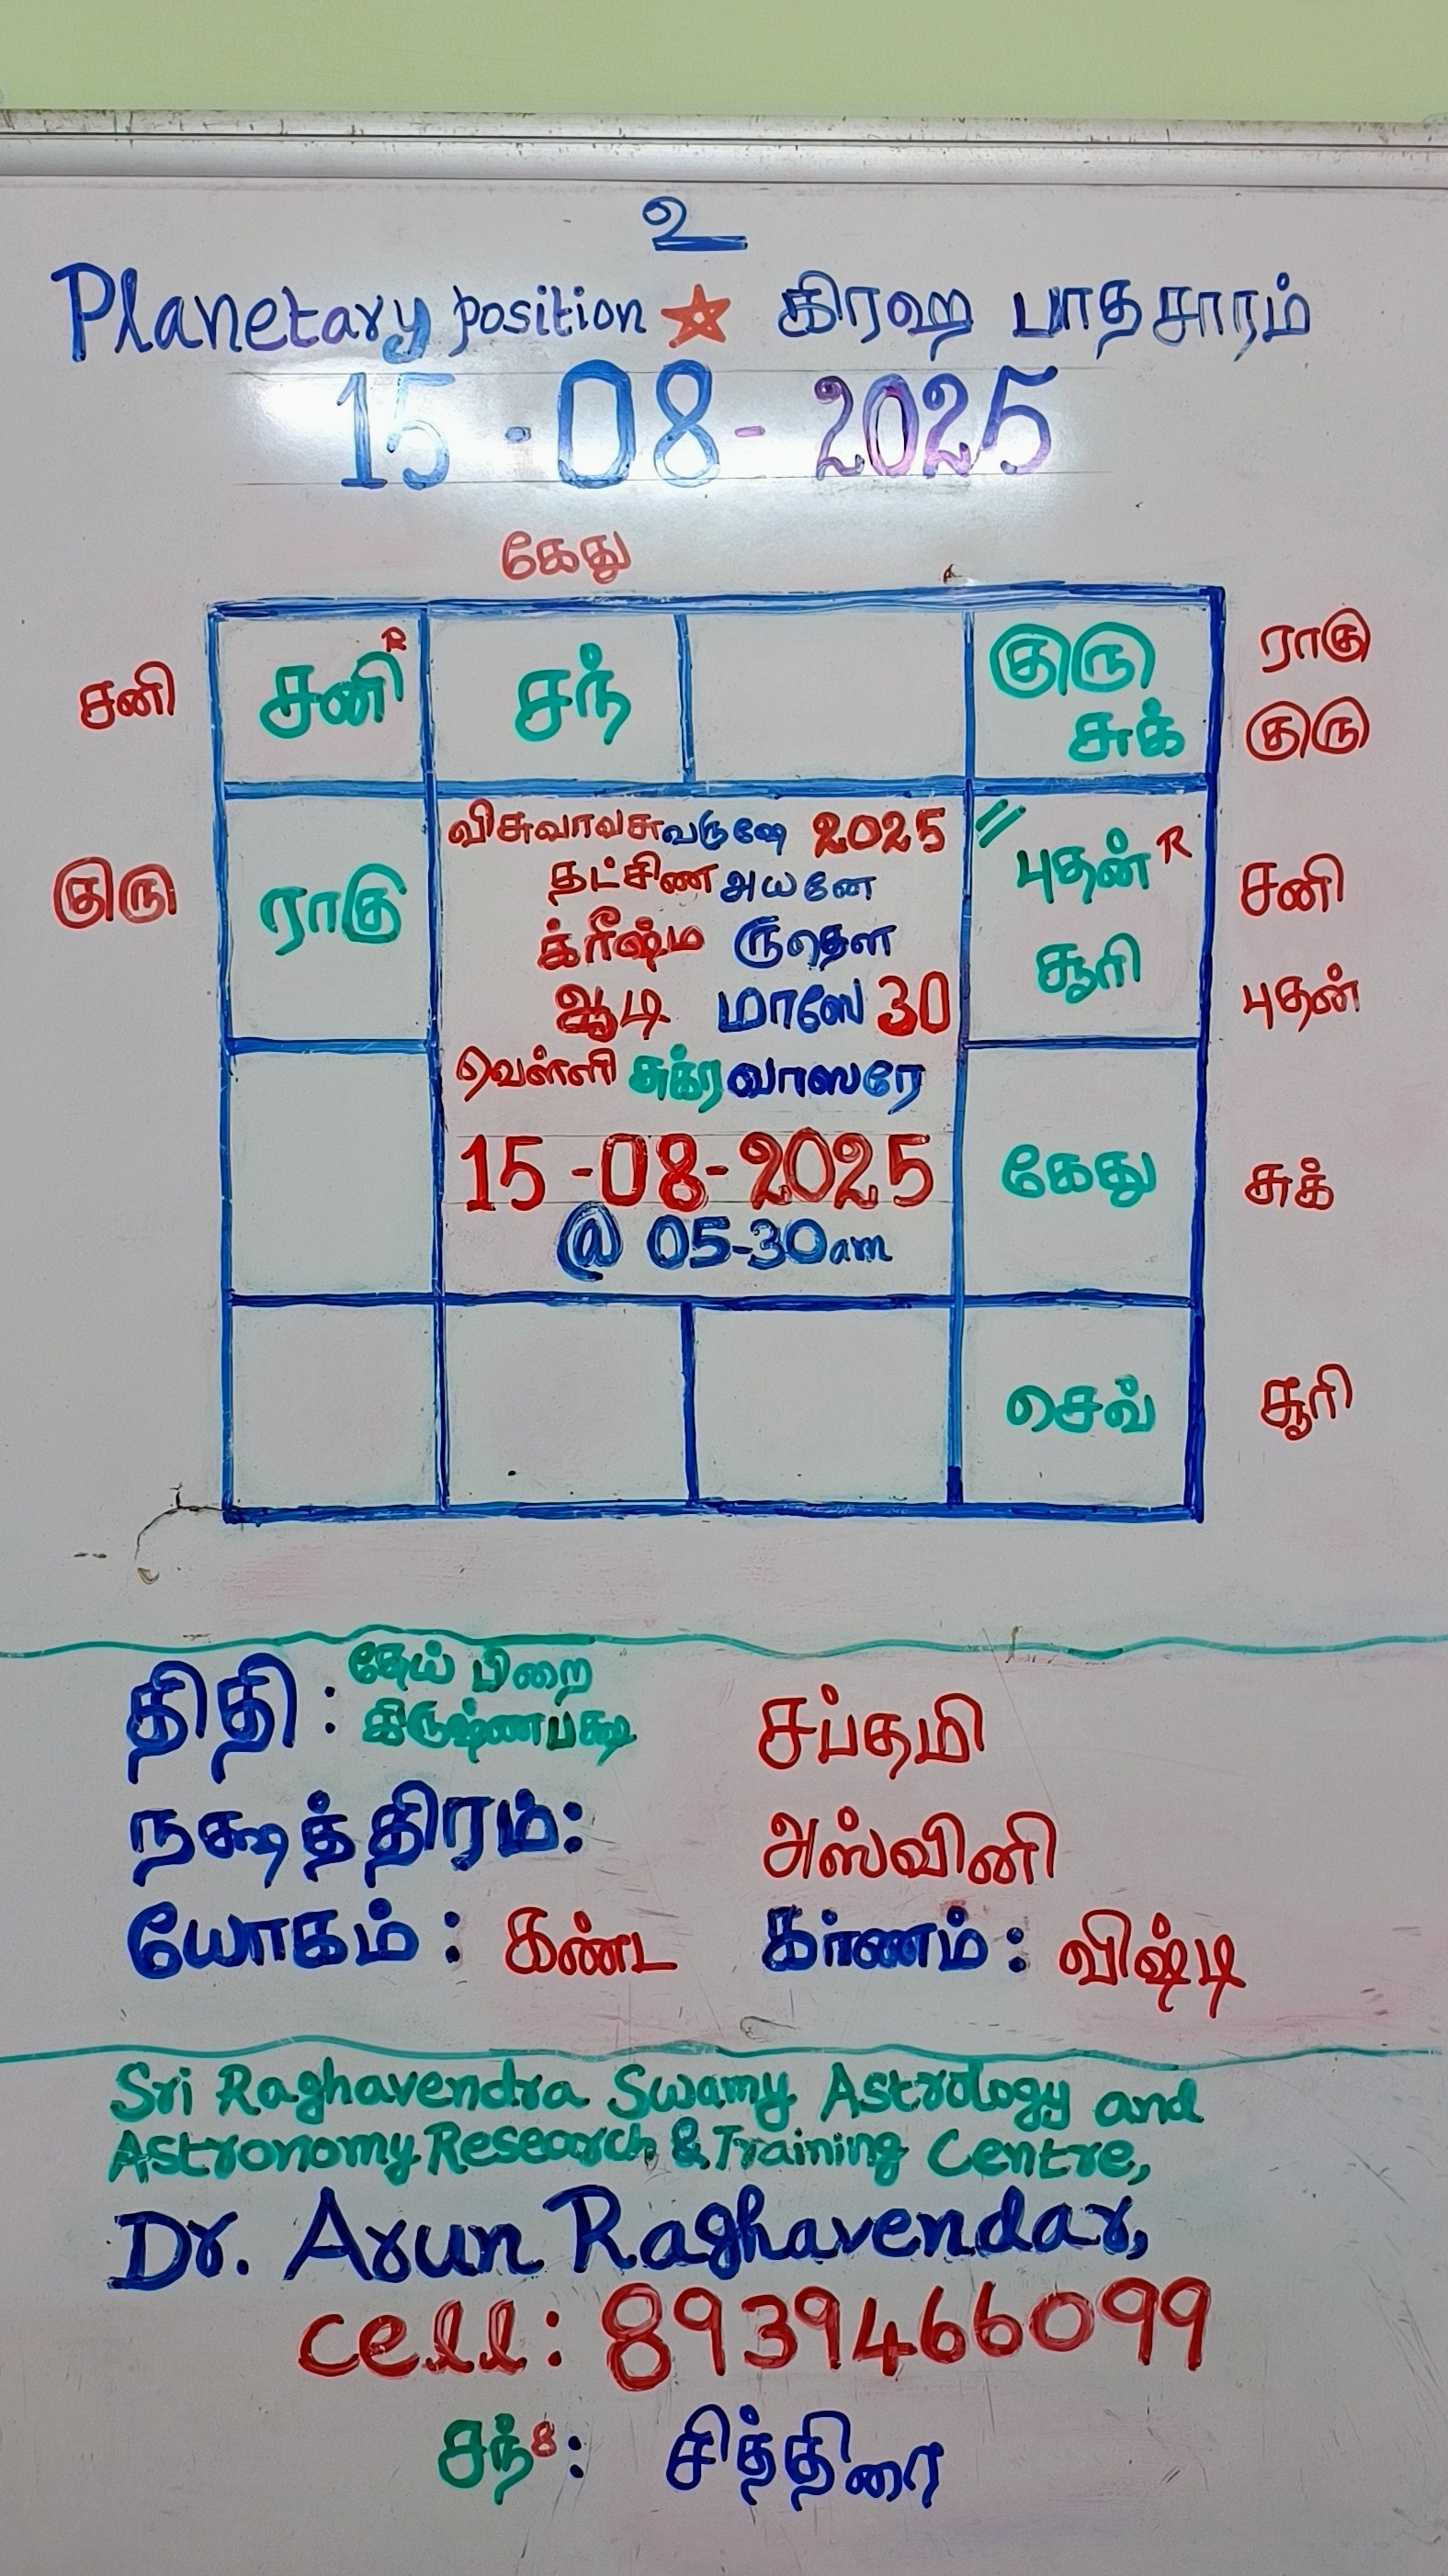 உ
Planetary position ★ கிரஹ பாதசாரம்
15-08-2025
கேது
சனி
சனி R
சந்
குரு
சுக்
ராகு
குரு
குரு
ராகு
விசுவாவசுவருஷே 2025
தட்சிண அயனே
க்ரீஷ்ம ருதௌ
ஆடி மாஸே 30
வெள்ளி சுக்ரவாஸரே
15-08-2025
@ 05-30am
புதன் R
சூரி
சனி
புதன்
கேது
சுக்
செவ்
சூரி
திதி : தேய் பிறை
கிருஷ்ணபக்ஷ சப்தமி
நக்ஷத்திரம்: அஸ்வினி
யோகம் : கண்ட கர்ணம் : விஷ்டி
Sri Raghavendra Swamy Astrology and
Astronomy Research & Training Centre,
Dr. Arun Raghavendar,
cell: 8939466099
சந்8: சித்திரை